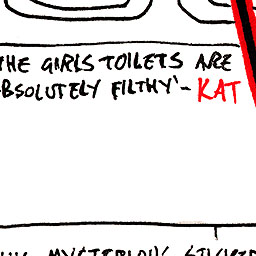 THE GIRLS TOILETS ARE
ABSOLUTELY FILTHY'- KAT
MYSTERIOUS